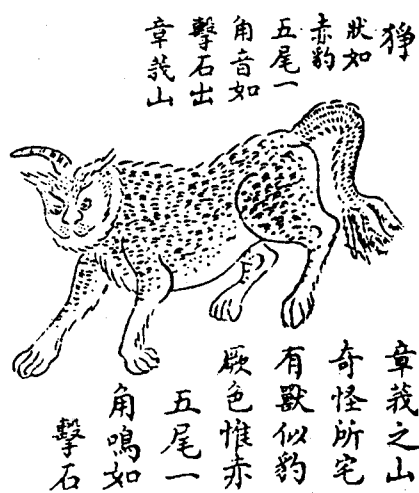 猙
狀如
赤豹
五尾一
角音如
擊石出
章莪山
章莪之山
奇怪所宅
有獸似豹
厥色惟赤
五尾一
角鳴如
擊石